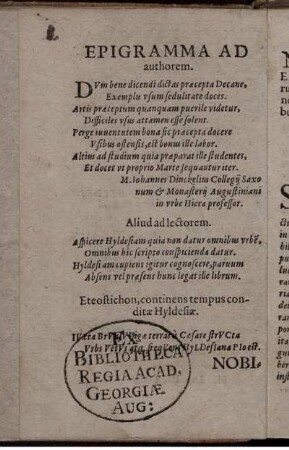 EPIGRAMMA AD
authorem.
DVm bene dicendi dictas præcepta Decane,
Exemplis vsum sedulitate doces.
Artis præceptum quanquam puerile videtur,
Difficiles vsus attamen esse solent.
Perge iuuentutem bona sic præcepta docere
Vsibus ostensis, est bonus ille labor.
Altius ad studium quia præparat ille studentes,
Et docet vt proprio Marte sequantur iter.
M. Iohannes Dinckelius Collegij Saxo
num & Monasterij Augustiniani
in vrbe Hiera professor.
Aliud ad lectorem.
Aspicere Hyldesiam quia non datur omnibus vrbē,
Omnibus hic scripto conspicienda datur.
Hyldesiam cupiens igitur cognoscere, paruum
Absens vel præsens hunc legat ille librum.
Eteostichon, continens tempus con-
ditæ Hyldesiæ.
terrarū Cæsare strVCta
Vrbs HyLDesiana PIo est.
NOBI-
EX
BIBLIOTHECA
REGIA ACAD.
GEORGIÆ
AUG: